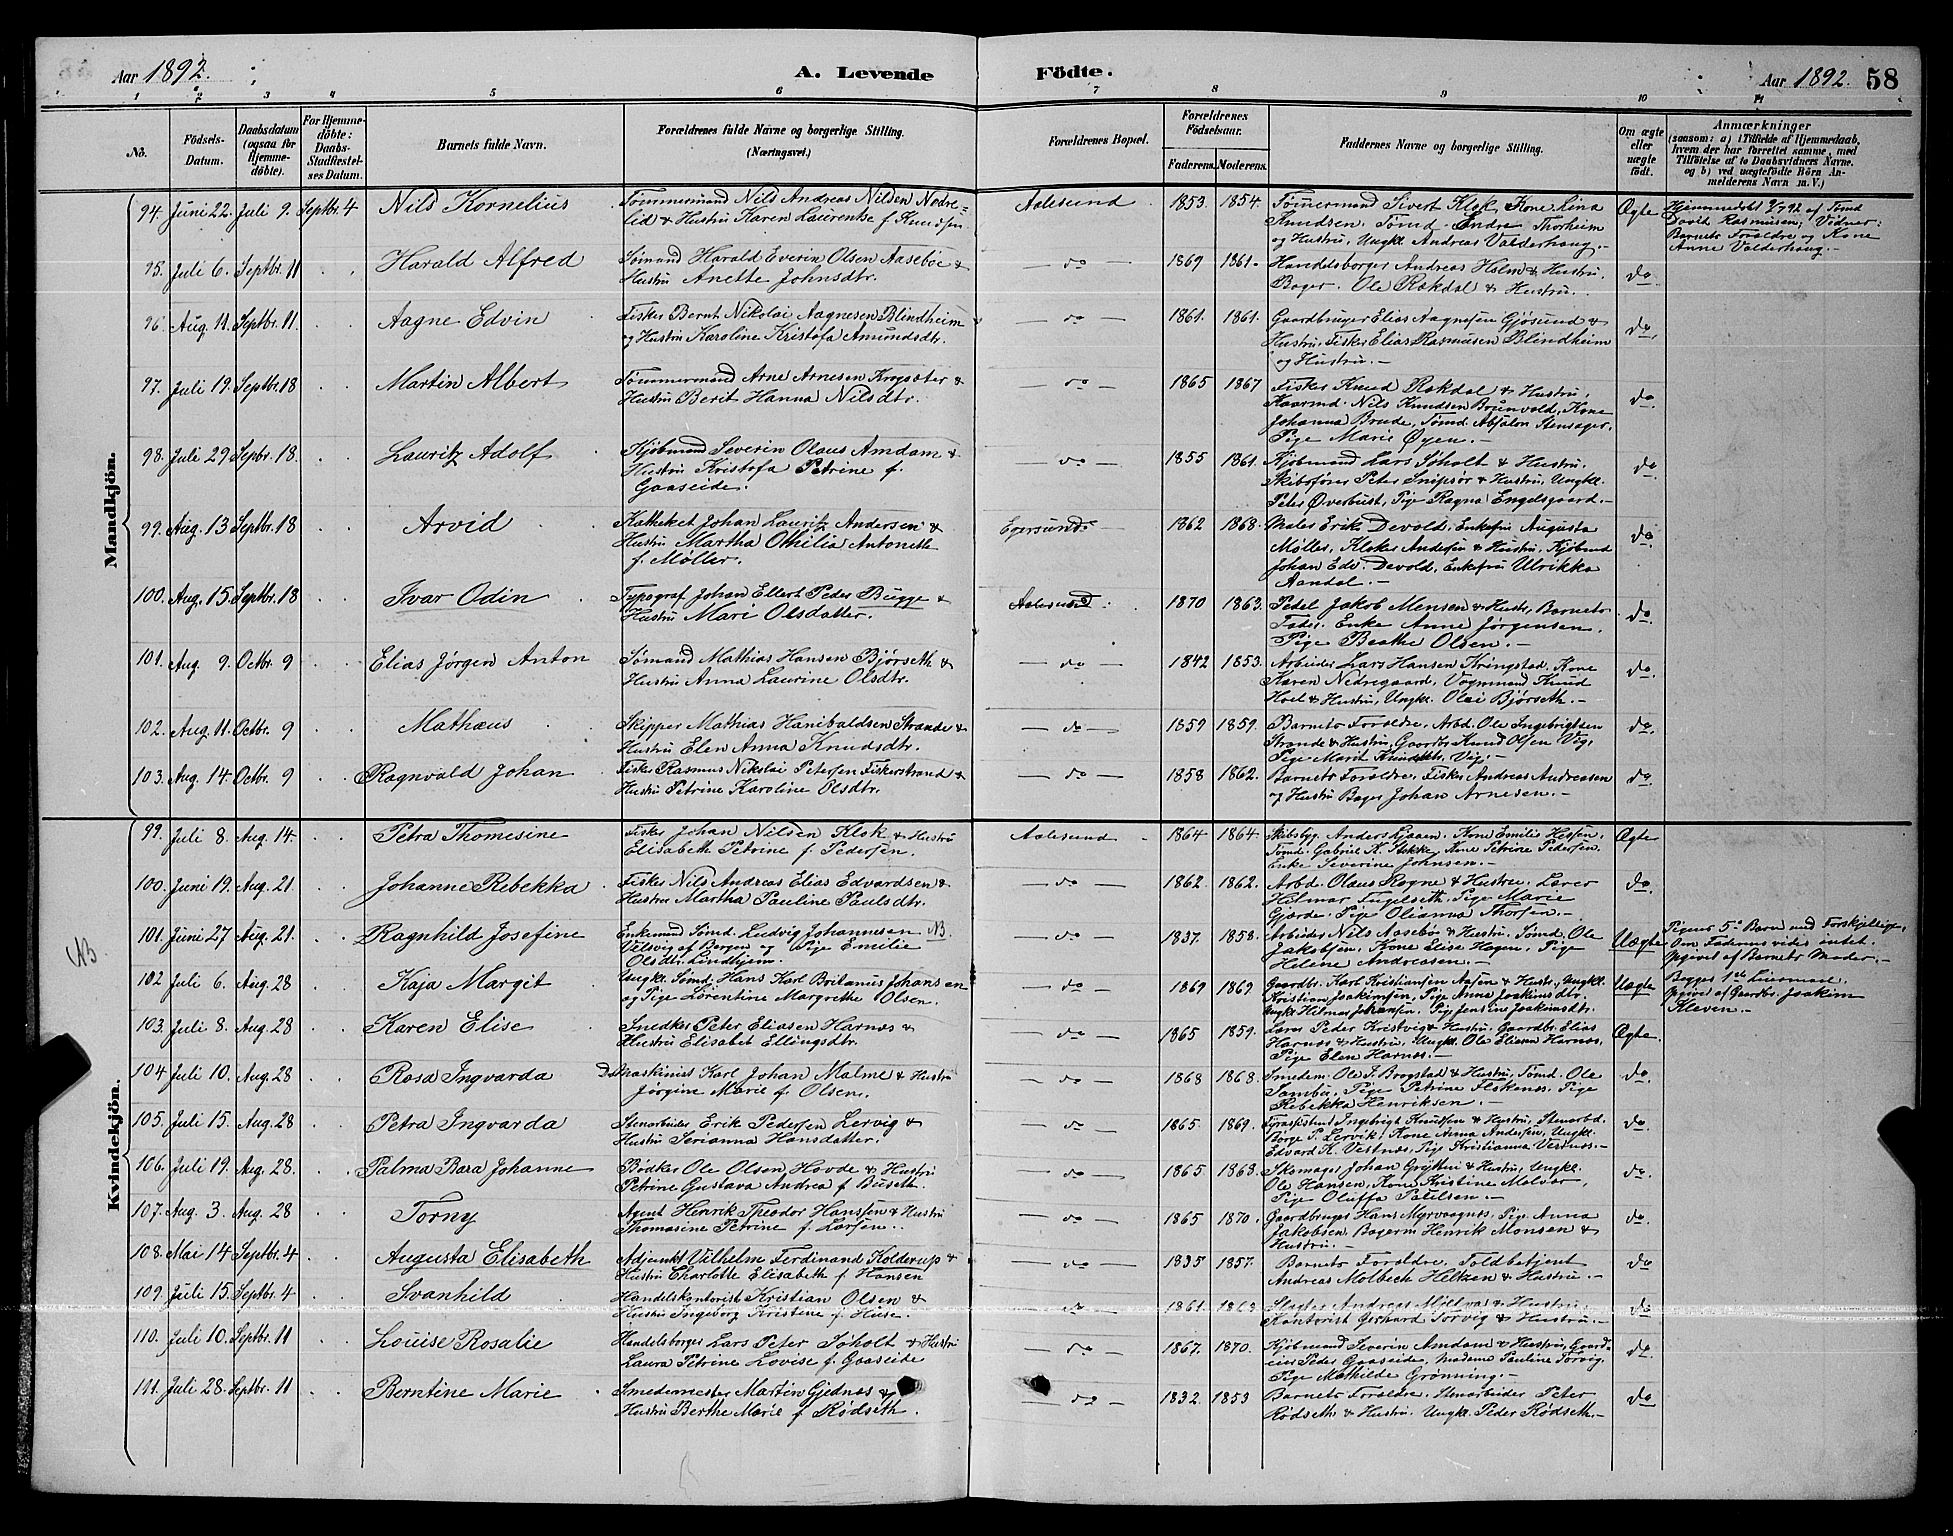 Aar 1892. A. Levende Födte. Aar 1892. 58
1 2 3 4 5 6 7 8 9 10 11
No. Födsels-Datum. Daabsdatum (ogsaa for Hjemme-döbte). For Hjemme-döbte: Daabs-Stadfæstel-ses Datum. Barnets fulde Navn. Forældrenes fulde Navne og borgerlige Stilling. (Næringsvei.) Forældrenes Bopæl. Forældrenes Födselsaar. Faderens. Moderens. Faddernes Navne og borgerlige Stilling. Om ægte eller uægte födt. Anmærkninger (saasom: a) i Tilfælde af Hjemmedaab, hvem der har forrettet samme, med Tilföielse af to Daabsvidners Navne. og b) ved uægtefödte Börn An-melderens Navn m. V.)
Mandkjön.
94. Juni 22. Juli 9. Septbr. 4 Nils Kornelius Tømmermand Nils Andreas Nilsen Nodre-
lid & Hustru Karen Laurentse f. Knudsen.
Aalesund 1853. 1854. Tømmermand Sivert Klok, Kone Lina
Knudsen. Tømd. Endre Thorheim
og Hustru, Ungkl. Andreas Valderhaug.
Ægte Hjemmedøbt 9/7 92 af Tømd
David Rasmusen, Vidner:
Barnets Forældre og Kone
Anne Valderhaug.
95. Juli 6. Septbr. 11 Harald Alfred Sømand Harald Everin Olsen Aasebøe &
Hustru Anette Johnsdtr.
do 1869 1861. Handelsborger Andreas Holm & Hustru.
Bager Ole Rokdal & Hustru.
do
96. Aug. 11. Septbr. 11. Aagne Edvin Fisker Bernt Nikolai Aagnesen Blindheim
og Hustru Karoline Kristofa Amundsdtr.
do 1861. 1861. Gaardbruger Elias Aagnesen Gjøsund &
Hustru, Fisker Elias Rasmusen Blindheim
og Hustru.
do
97. Juli 19. Septbr. 18 Martin Albert Tømmermand Arne Arnesen Krogsæter &
Hustru Berit Hanna Nilsdtr.
do 1865 1867 Fisker Knud Rokdal & Hustru,
Nils Knudsen Brunvold, Kone
Johanna Brude, Tømd. Absalon Stensager,
Pige Marie Øyen.
do
98. Juli 29 Septbr. 18. Lauritz Adolf Kjøbmand Severin Olaus Amdam &
Hustru Kristofa Petrine f.
Gaaseide.
do 1855 1861. Kjøbmand Lars Søholt & Hustru.
Skibsfører Peter Snipsør & Hustru, Ungkl.
Peter Øverbust, Pige Ragna Engelsgaard.
do
99. Aug. 13 Septbr. 18 Arvid Katheket Johan Lauritz Andersen &
Hustru Martha Othilia Antonette
f. Møller.
Egersund 1862 1868. Maler Erik Devold. Enkefru Augusta
Møller, Kloker Andersen & Hustru, Kjøbmd
Johan Edv. Devold. Enkefru Ulrikka
Aandal.
do
100. Aug. 15. Septbr. 18 Ivar Odin Typograf Johan Ellert Peder Bugge &
Hustru Mari Olsdatter.
Aalesund 1870 1863. Pedel Jakob Mensen & Hustr, Barnets
Fader. Enke Anne Jørgensen,
Pige Beathe Olsen.
do
101. Aug. 9. Octbr. 9 Elias Jørgen Anton Sømand Mathias Hansen Bjørseth &
Hustru Anna Laurine Olsdtr.
do 1842 1853. Arbeider Lars Hansen Kringstad. Kone
Karen Nedregaard, Vognmand Knud
Hoel & Hustru, Ungkl. Olai Bjørseth.
do
102. Aug. 11. Octbr. 9 Mathæus Skipper Mathias Hanibaldsen Strande &
Hustru Elen Anna Knudsdtr.
do 1859 1859. Barnets Forældre, Arbd. Ole Ingebrigtsen
Strande & Hustru, Gaardbr Knud Olsen Vig,
Pige Marit Knudsdtr. Vig.
do
103. Aug. 14. Octbr. 9 Ragnvald Johan Fisker Rasmus Nikolai Petersen Fiskerstrand &
Hustru Petrine Karoline Olsdtr.
do 1858 1862. Barnets Forældre, Fisker Andreas Andreasen
og Hustru Bager Johan Arnesen.
do
Kvindekjön.
99. Juli 8. Aug. 14. Petra Thomesine Fisker Johan Nilsen Klok & Hustru
Elisabeth Petrine f. Pedersen.
Aalesund 1864 1864. Skibsbyg. Anders Liaaen, Kone Emilie Hessen,
Tømd. Gabriel K. Stokke, Kone Petrine Pedersen
Enke Severine Johnsen.
Ægte
100. Juni 19. Aug. 21. Johanne Rebekka Fisker Nils Andreas Elias Edvardsen &
Hustru Martha Pauline Paulsdtr.
do 1862. 1862. Arbd. Olaus Rogne & Hustru. Lærer
Hilmar Engelseth, Pige Marie
Gjærde, Pige Olianna Thorsen.
do
NB. 101. Juni 27 Aug. 21. Ragnhild Josefine Enkemand Sømd. Ludvig Johannesen NB
Velsvig af Borgen og Pige Emilie
Olsdtr. Lindhjem.
do 1837. 1858. Arbeider Nils Aasebø & Hustru, Tømd. Ole
Jakobsen, Kone Elise Hagen, Pige
Helene Andreasen.
Uægte Pigens 5te Barn med Forskjellige,
Om Faderen vides intet.
Opgivet af Barnets Moder.
102 Juli 6. Aug. 28 Kaja Margit Ungkl. Sømd. Hans Karl Britanus Johansen
og Pige Lorentine Margrethe Olsen.
do 1869 1869. Gaardbr. Karl Kristiansen Aasen & Hustr, Ungkl.
Kristian Joakimsen, Pige Anna Joakimsdtr.
Ungkl Hilmar Johansen, Pige Jensine Joakimsdtr.
Uægte Begges 1ste Leiermaal.
Opgivet af Gaardbr. Joakim
Kleven.
103. Juli 8. Aug. 28 Karen Elise Snedker Peter Eliasen Harnæs &
Hustru Elisabet Ellingsdtr.
do 1865 1859. Lærer Peder Kristvig & Hustru, Gaardbr. Elias
Harnæs & Hustru, Ungkl. Ole Eliasen Harnæs,
Pige Elen Harnæs.
Ægte.
104 Juli 10. Aug. 28 Rosa Ingvarda D/s Maskinist Karl Johan Malme & Hustru
Jørgine Marie f. Olsen.
do 1868 1868. Smedem. Ole J. Brogstad & Hustru, Tømd. Ole
Sambu, Pige Petrine Flskenes, Pige
Rebekka Henriksen.
do.
105. Juli 15. Aug. 28 Petra Ingvarda Stenarbeider Erik Pedersen Lervig &
Hustru Serianna Hansdatter.
do 1865 1869. Fyrassistent Ingebrigt Knudsen & Hustru, Stenarbd.
Børge P. Lervik, Kone Anna Andersen, Ungkl.
Edvard K. Vestnæs, Pige Kristianna Vestnæs.
do.
106. Juli 19. Aug. 28. Palma Bara Johanne Bødker Ole Olsen Hovde & Hustru
Petrine Gustava Andrea f. Buseth.
do 1865 1868. Skomager Johan Grytten & Hustru, Ungkl.
Ole Hansen, Kone Kristine Malvær,
Pige Oluffa Paulsen.
do.
107. Aug. 3. Aug. 28 Torny Agent Henrik Theodor Hanssen & Hustru
Thomasine Petrine f. Larsen.
do 1865 1870. Gaardbruger Hans Myrvaagnes, Pige Anna
Jakobsen, Bagerm. Henrik Monsen &
Hustru.
do.
108. Mai 14 Septbr. 4 Augusta Elisabeth Adjunkt Vilhelm Ferdinand Kolderup &
Hustru Charlotte Elisabeth f. Hansen
do 1835 1857. Barnets Forældre, Toldbetjent
Andreas Molbech Heltzen & Hustru.
do
109. Juli 15. Septbr. 4 Svanhild Handelskontorist Kristian Olsen &
Hustru Ingeborg Kristine f. Huse.
do 1861. 1868 Slagter Andreas Mjelvar & Hustru.
Kontorist Gerhard Torvig & Hustru.
do
110. Juli 10. Septbr. 11 Louise Rosalie Handelsborger Lars Peter Søholt & Hustru
Laura Petrine Lovise f. Gaaseide
do 1867. 1870. Kjøbmand Severin Amdam & Hustru, Gaard-
eier Peder Gaaseide, Madame Pauline Torvig,
Pige Mathilde Grønning.
do
111. Juli 28. Septbr. 11 Berntine Marie Smedemester Martin Gjednæs &
Hustru Berthe Marie f. Rødseth.
do 1832. 1853 Barnets Forældre. Stenarbeider Peter
Rødseth & Hustru. Ungkl. Peder Rødseth.
do